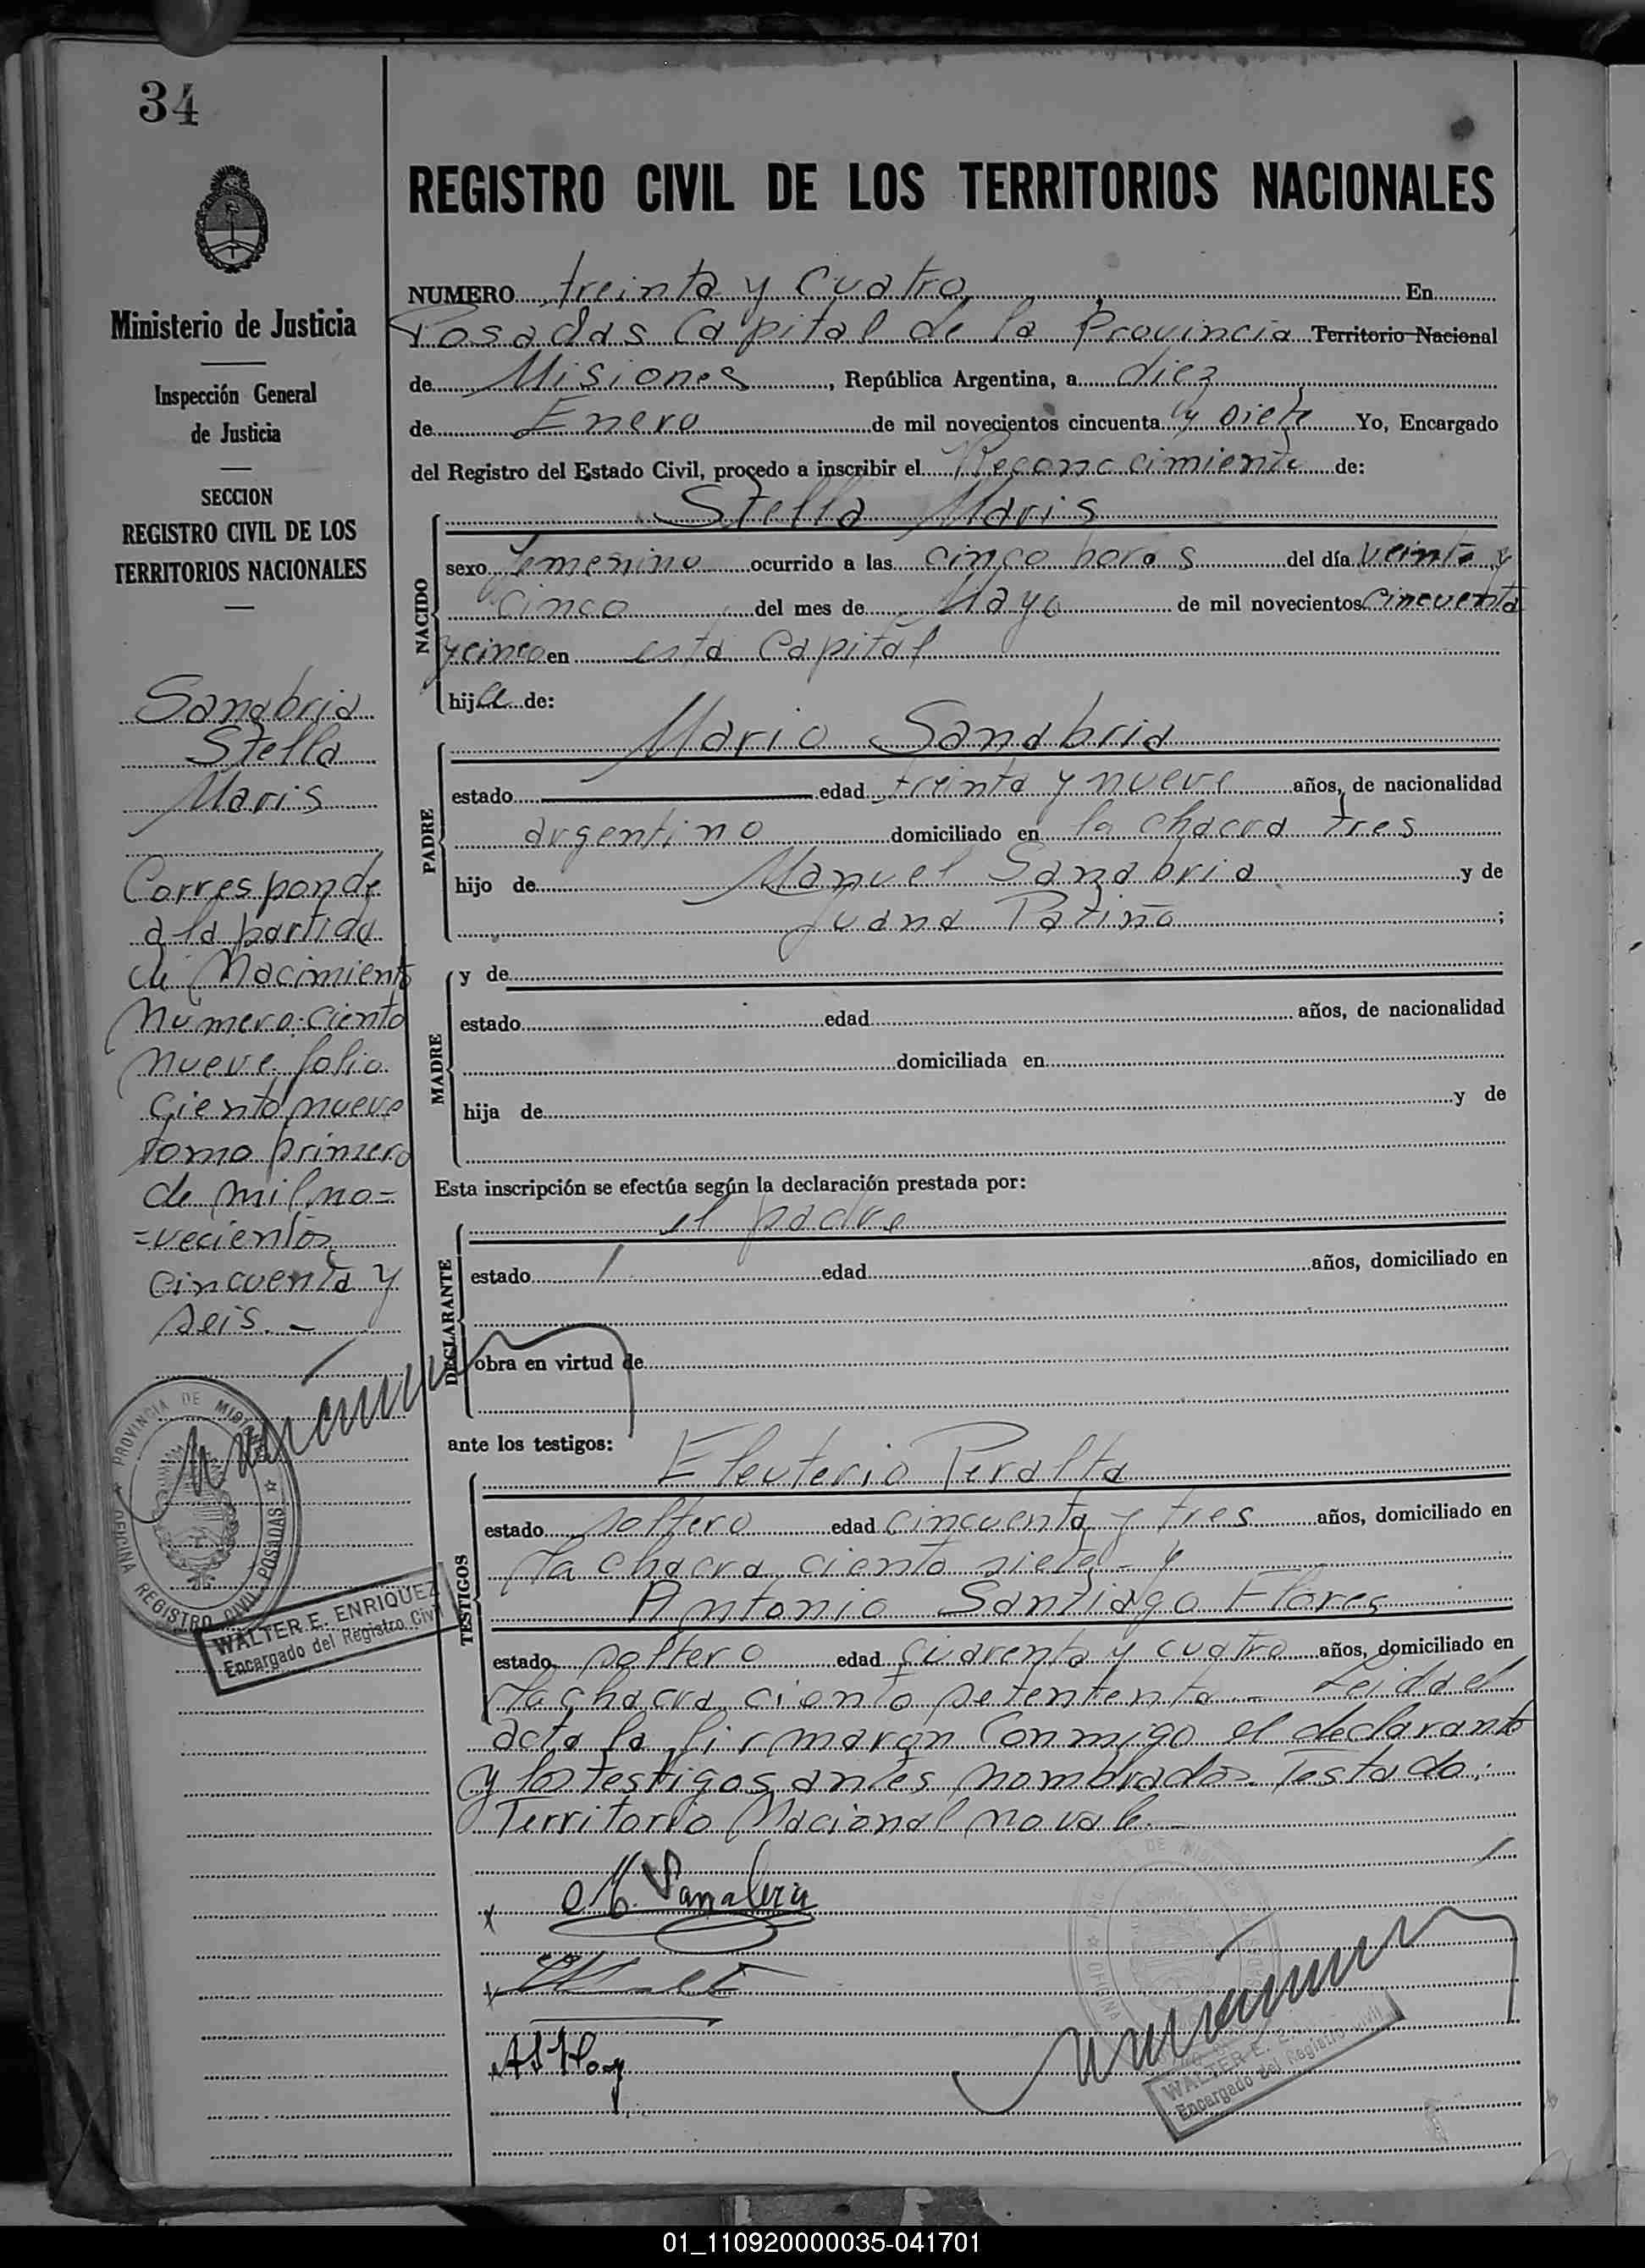 34
REGISTRO CIVIL DE LOS TERRITORIOS NACIONALES
Ministerio de Justicia
Inspección General
de Justicia
SECCION
REGISTRO CIVIL DE LOS
TERRITORIOS NACIONALES
Sanabria
Stella
Maris
Corresponde
a la partida
de Nacimiento
Numero ciento
nueve folio
ciento nueve
tomo primero
de mil no=
=vecientos
cincuenta y
seis. -
PROVINCIA DE MISIONES
OFICINA REGISTRO CIVIL POSADAS
WALTER E. ENRIQUEZ
Encargado del Registro Civil
NUMERO treinta y cuatro, En
Posadas Capital de la Provincia Territorio Nacional
de Misiones, República Argentina, a diez
de Enero de mil novecientos cincuenta y siete Yo, Encargado
del Registro del Estado Civil, procedo a inscribir el Reconocimiento de:
NACIDO
Stella Maris
sexo femenino ocurrido a las cinco horas del día veinte y
cinco del mes de Mayo de mil novecientos cincuenta
y cinco en esta Capital
hija de:
PADRE
Mario Sanabria
estado edad treinta y nueve años, de nacionalidad
argentino domiciliado en la chacra tres
hijo de Manuel Sanabria y de
Juana Patiño ;
MADRE
y de
estado edad años, de nacionalidad
domiciliada en
hija de y de
Esta inscripción se efectúa según la declaración prestada por:
DECLARANTE
el padre
estado edad años, domiciliado en
obra en virtud de
ante los testigos:
TESTIGOS
Eleuterio Peralta
estado soltero edad cincuenta y tres años, domiciliado en
la chacra ciento siete - y
Antonio Santiago Flores
estado soltero edad cuarenta y cuatro años, domiciliado en
la chacra ciento setententa - Leida el
acta la firmaron conmigo el declarante
y los testigos antes nombrados. Testado:
Territorio Nacional no vale. -
M. Sanabria
WALTER E.
Encargado del Registro Civil
01_110920000035-041701